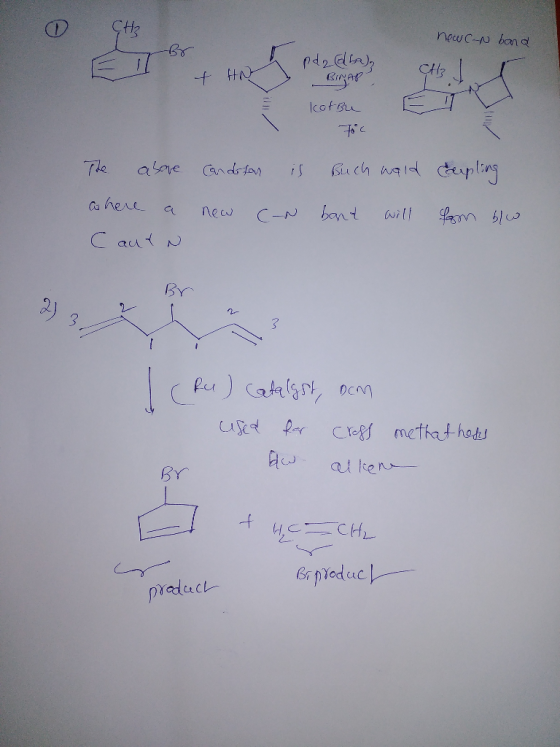 ①
CH3
Br
+
HN
Pd2(dba)3
BINAP
KOtBu
70°C
new C-N bond
CH3
N
The above condition is Buchwald Coupling
where a new C-N bont will form b/w
C aut N
2)
Br
3 2 1 1 2 3
(Ru) Catalyst, DCM
used for cross methathedis
b/w alkene
Br
+ H2C=CH2
product
Biproduct